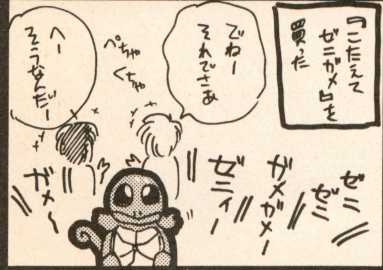 『こたえて
ゼニガメ』を
買った
でねー
それでさあ
ぺちゃ
くちゃ
へー
そうなんだー
ゼニ
ゼニ
ガメガメー
ゼニィー
ガメ〜